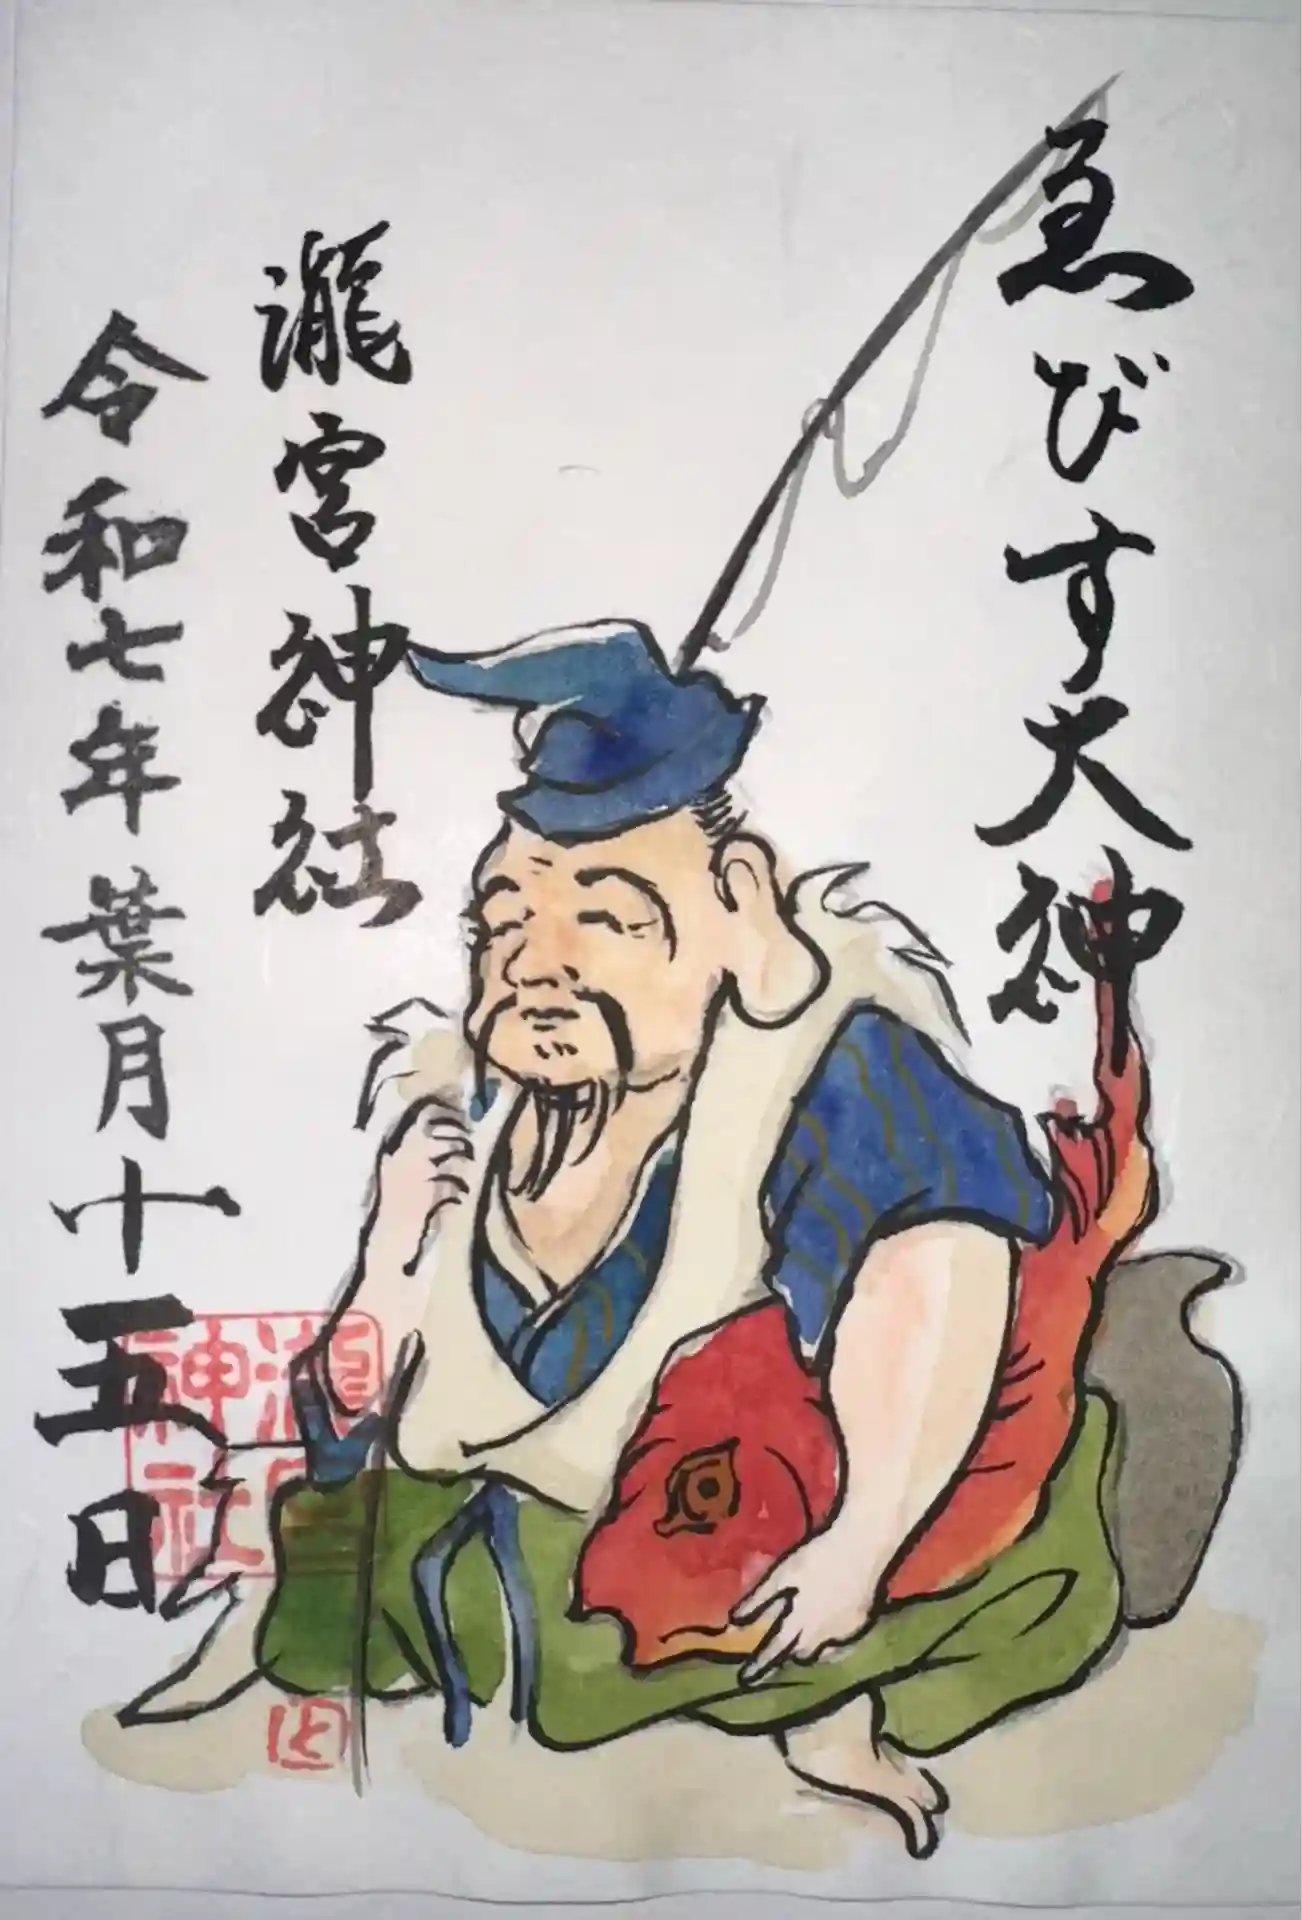 ゑびす大神
瀧宮神社
令和七年葉月十五日